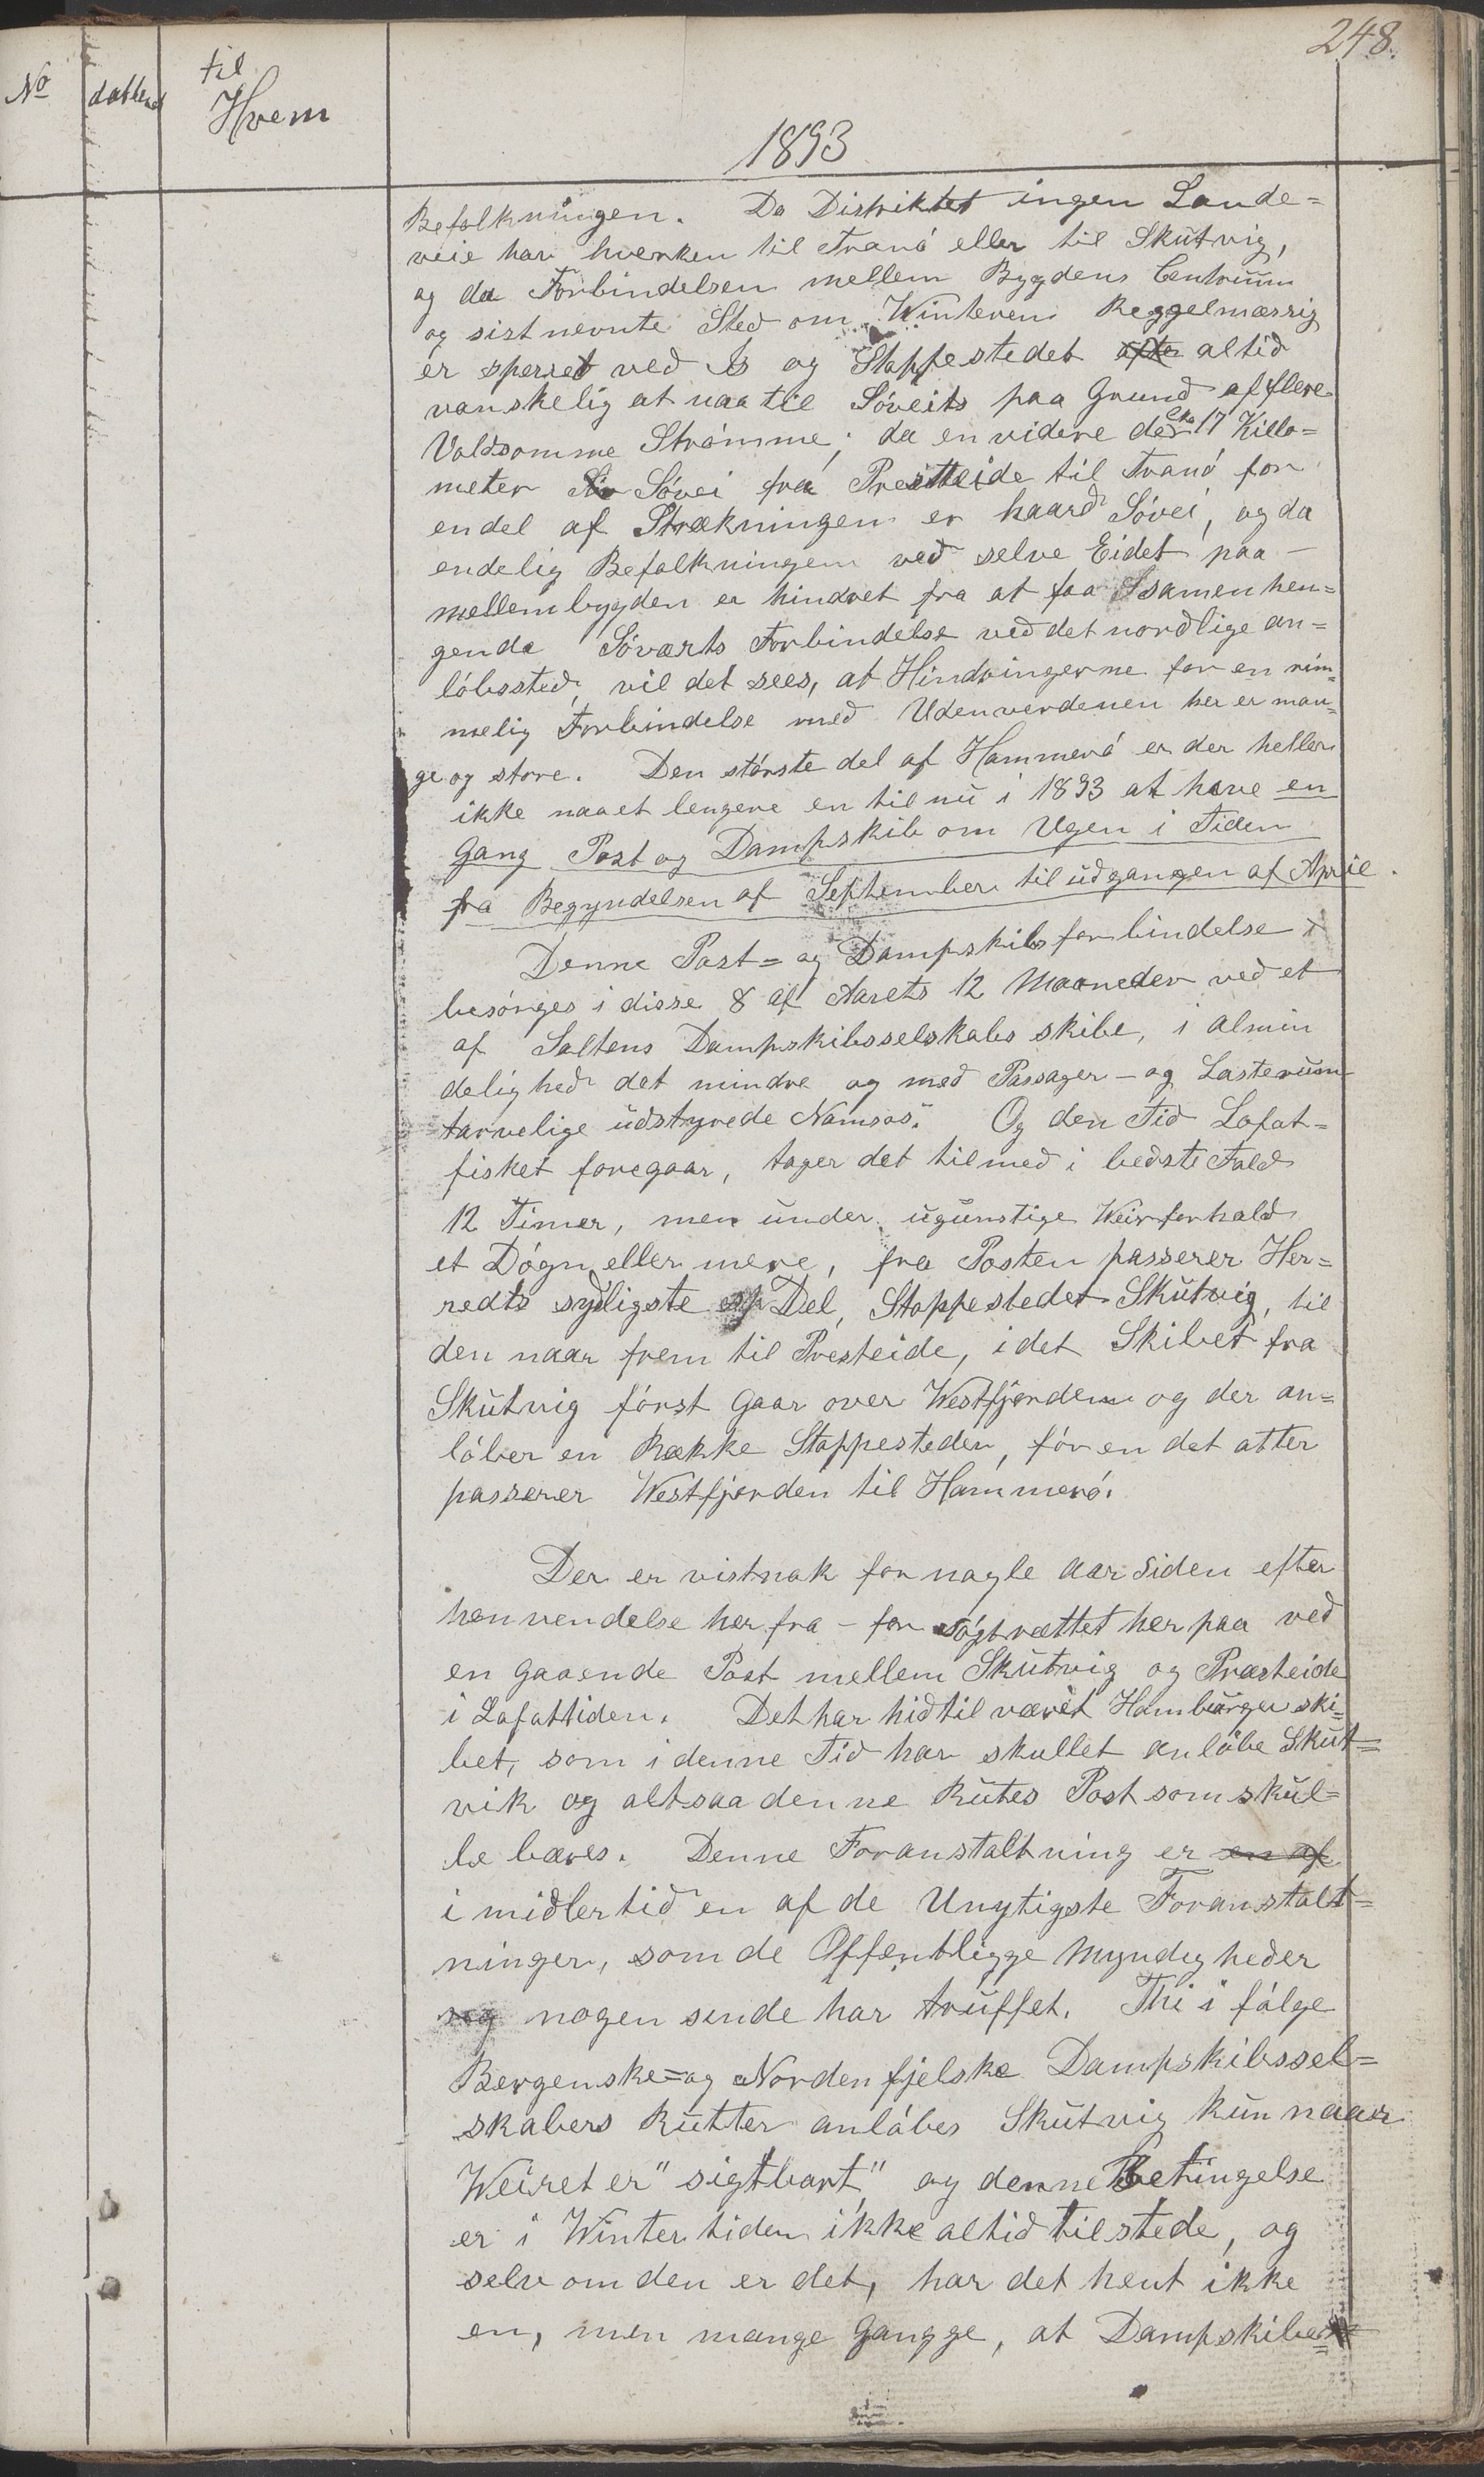 248.
No
datten
til
Hvem
1893
Befolkningen. Da Distriktet ingen Lande=
veie har hverken til Tranó eller til Skutvig,
og da Forbindelsen mellem Bygdens Centrum
og sist nevnte Sted om Winteren Reggelmæssig
er sperret ved Is og Stoppestedet ofte altid
vanskelig at naa til Sóveits paa Grund af flere
Voldsomme Strómme; da en videre den cka 17 Killo=
meter Sóvei fra Presteide til Tranó for
endel af Strækningen er haard Sóvei, og da
endelig Befolkningen ved selve Eidet paa -
mellembygden er hindret fra at faa Ssamenhen=
gende Sóværts Forbindelse ved det nordlige an=
lóbssted, vil det sees, at Hindringerne for en rim=
melig Forbindelse med Udenverdenen her er man=
ge og store. Den stórste del af Hammeró er der heller
ikke naaet lengere en til nu i 1893 at have en
Gang Post og Dampskib om Ugen i Tiden
fra Begyndelsen af September til udgangen af April.
Denne Post= og Dampskibsforbindelse
besórges i disse 8 af Aarets 12 Maaneder ved et
af Saltens Dampskibsselskabs skibe, i almin
delighed det mindre og med Passager - og Lasterum
tarvelige udstyrede Namsos". Og den Tid Lofot=
fisket foregaar, tager det tilmed i bedste Fald
12 Timer, men under ugunstige Veirforhold
et Dógn eller mere, fra Posten passerer Her=
redts sydligste Del, Stoppestedet Skutvig, til
den naar frem til Presteide, i det Skibet fra
Skutvig fórst gaar over Westfjorden og der an=
lóber en Række Stoppesteder, fór en det atter
passerer Westfjorden til Hammeró.
Der er vistnok for nogle aar siden efter
henvendelse her fra - for sógt rættet her paa ved
en gaaende Post mellem Skutvig og Præsteide
i Lofottiden. Det har hidtil været Hamburger ski=
bet, som i denne Tid har skullet anlóbe Skut=
vik og altsaa denne Rutes Post som skul=
le bæres. Denne Foranstaltning er en af
i midlertid en af de Unytigste Foranstalt=
ninger, som de Offentligge Myndigheder
nogen sinde har truffet. Thi i fólge
Bergenske= og Nordenfjelske Dampskibssel=
skabers Rutter anlóbes Skutvig kun naar
Weiret er "sigtbart" og denne Betingelse
er i Winter tiden ikke altid tilstede, og
selv om den er det, har det hent ikke
en, men mange Gangge, at Dampskibet=